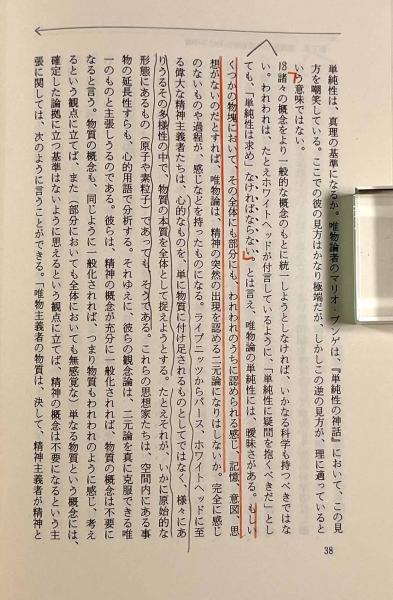 単純性は、真理の基準になるか。唯物論者のマリオ・ブンゲは、『単純性の神話』において、この見
方を嘲笑している。ここでの彼の見方はかなり極端だが、しかしこの逆の見方が、理に適っていると
いう意味ではない。
18 諸々の概念をより一般的な概念のもとに統一しようとしなければ、いかなる科学も持つべきではな
い。われわれは、たとえホワイトヘッドが付言しているように、「単純性に疑問を抱くべきだ」とし
ても、「単純性は求め」なければならない。とは言え、唯物論の単純性には、曖昧さがある。もしい
くつかの物塊において、その全体にも部分にも、われわれのうちに認められる感じ、記憶、意図、思
想がないのだとすれば、唯物論は、精神の突然の出現を認める二元論になりはしないか。完全に感じ
のないものや過程が、感じなどを持ったものになる。ライプニッツからパース、ホワイトヘッドに至
る偉大な精神主義者たちは、心的なものを、単に物質に付け足されるものとしてではなく、様々にあ
りうるその多様性の中で、物質の本質を全体として捉えようとする。たとえそれが、いかに原始的な
形態にあるもの（原子や素粒子）であっても、そうである。これらの思想家たちは、空間内にある事
物の延長性すらも、心的用語で分析する。それゆえに、彼らの観念論は、二元論を真に克服できる唯
一のものと主張しうるのである。彼らは、精神の概念が充分に一般化されれば、物質の概念は不要に
なると言う。物質の概念も、同じように一般化されれば、つまり物質もわれわれのように感じ、考え
るという観点に立てば、また（部分においても全体においても無感覚な）単なる物質という概念には、
確定した論拠に立つ基準はないように思えるという観点に立てば、精神の概念は不要になるという主
張に関しては、次のように言うことができる。「唯物主義者の物質は、決して、精神主義者が精神と
38